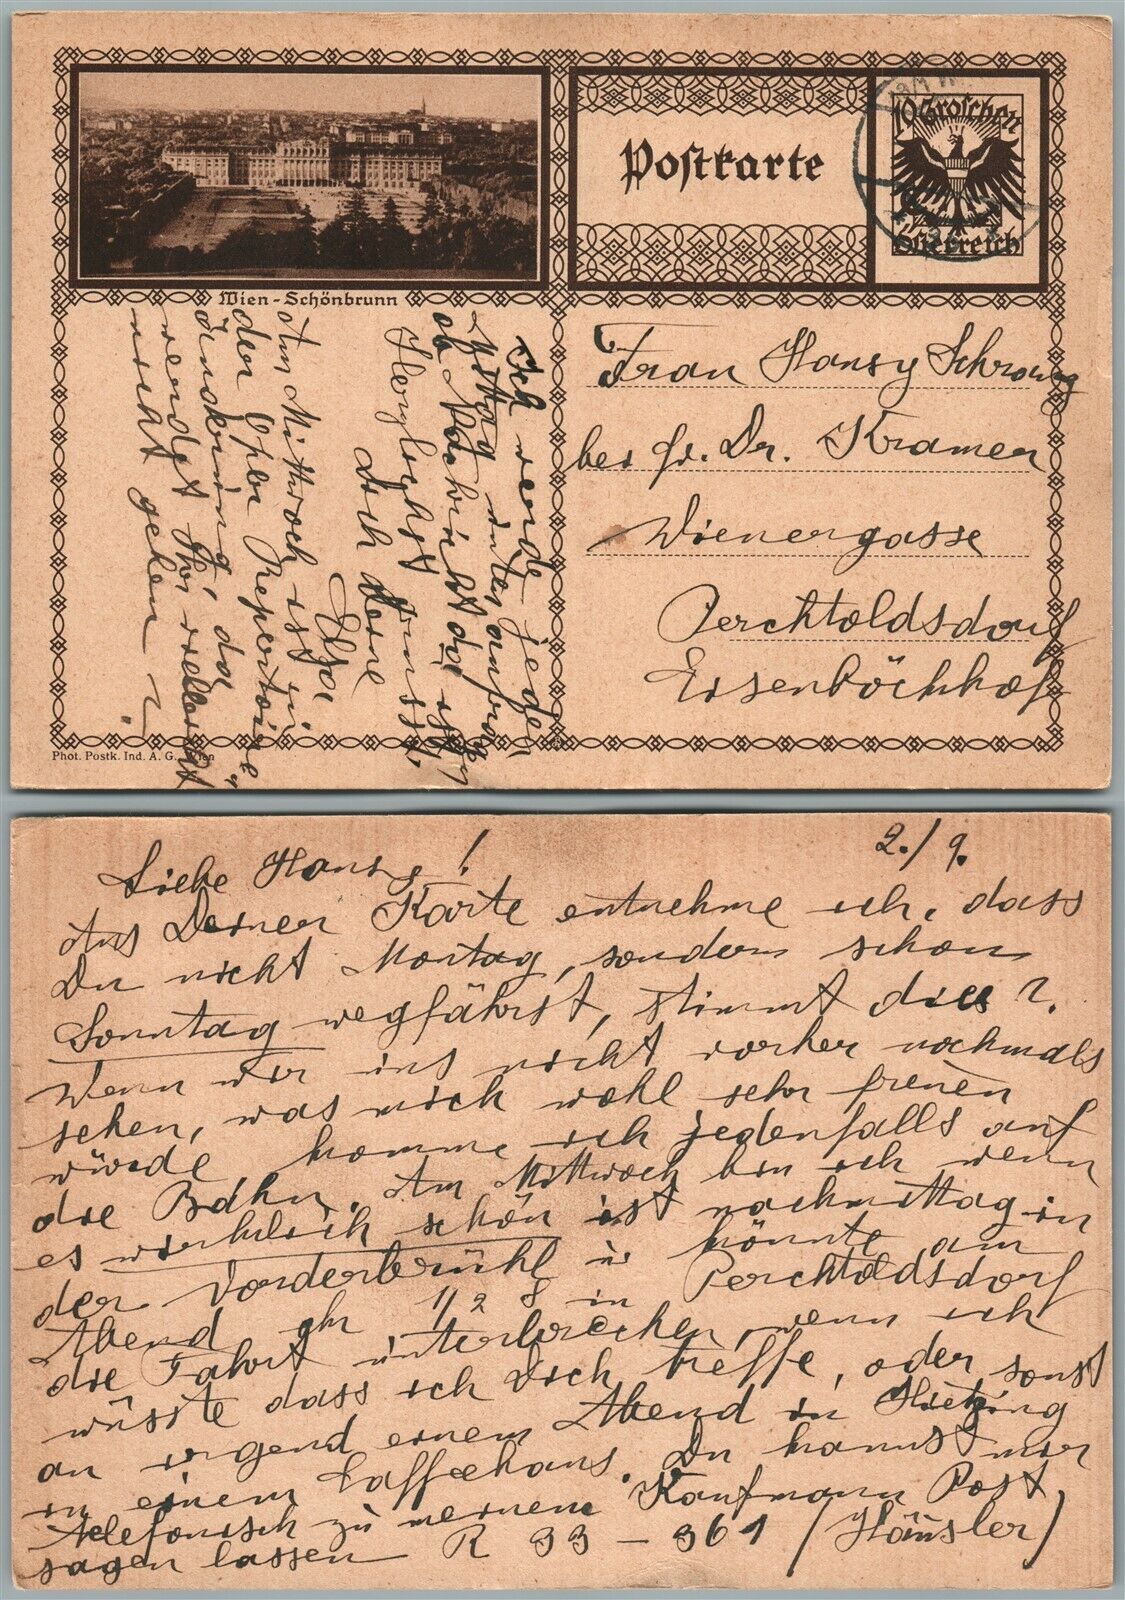 Wien-Schönbrunn
Postkarte
10 Groschen
Österreich
Frau Hansy
bei Fr. Dr. Kramer
Wienergasse
Perchtoldsdorf
Eisenböckhof
Phot. Postk. Ind. A. G. Wien
Liebe Hansy! 2./9.
Aus Deiner Karte entnehme ich, dass
Du nicht Montag, sondern schon
Sonntag wegfährst, stimmt dies?
Wenn wir uns nicht vorher nochmals
sehen, was mich wohl sehr freuen
würde, komme ich jedenfalls auf
die Bahn. Am Mittwoch bin ich wenn
es wirklich schön ist nachmittag in
der Vorderbrühl u könnte am
Abend ghr 1/2 8 in Perchtoldsdorf
die Fahrt unterbrechen, wenn ich
wüsste dass ich Dich treffe, oder sonst
an irgend einem Abend in Hietzing
in einem Caffeehaus. Du kannst mir
telefonisch zu meinem Kaufmann Post
sagen lassen R 33-361 /Häusler/
Ich werde jeden
Mittag unten anfragen
ob Nachricht da ist.
Herzlichst Bussi
Dich Deine
Elsa
Am Mittwoch ist in
der Oper Repertoire"
änderung, da
werdet Ihr vielleicht
nicht gehen?